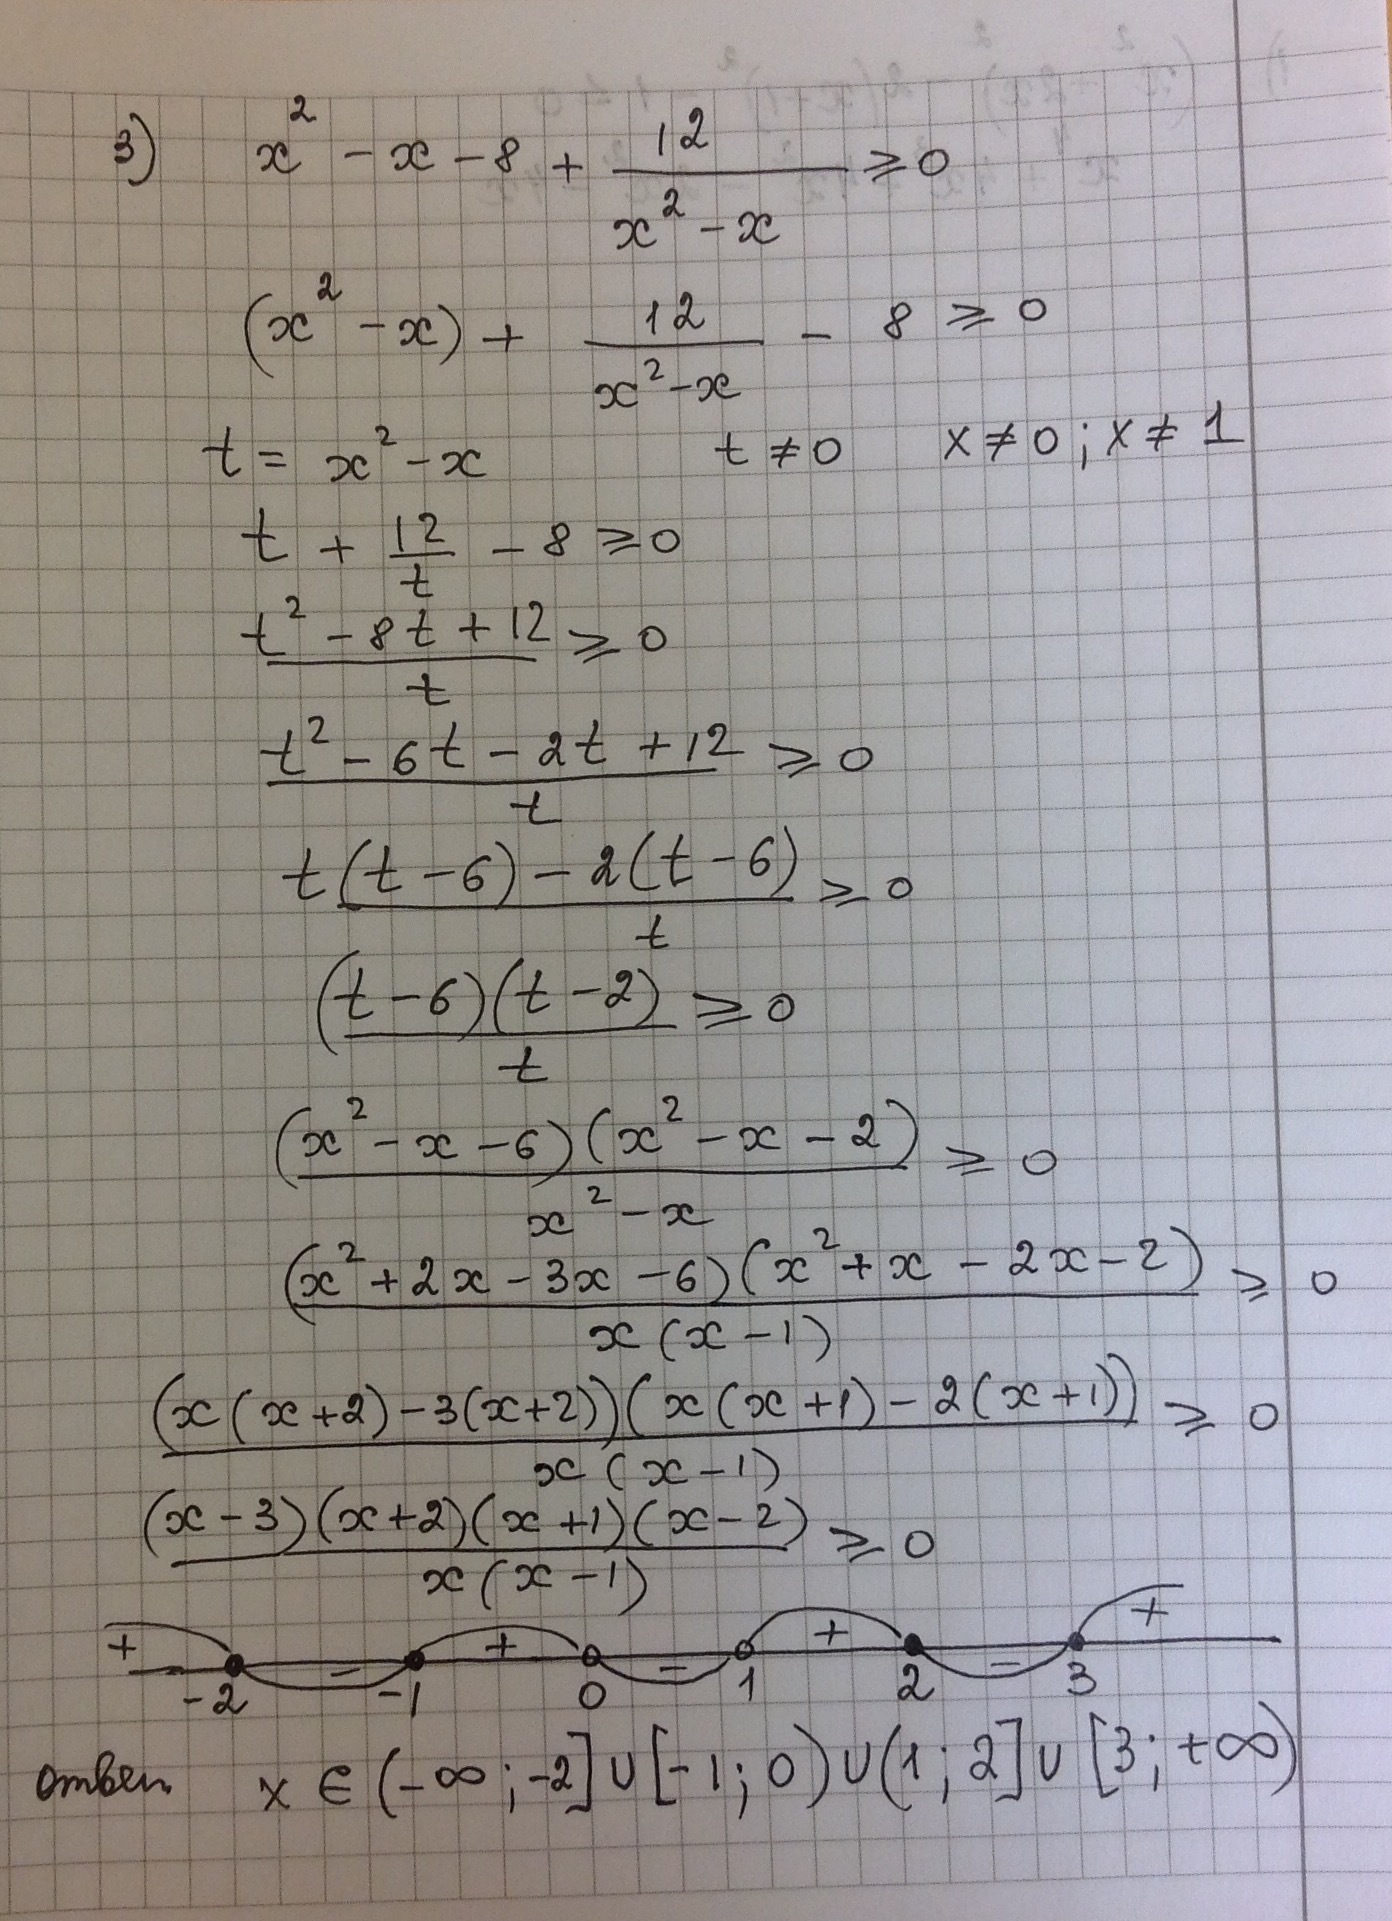 3) x² - x - 8 + 12/(x² - x) ⩾ 0
(x² - x) + 12/(x² - x) - 8 ⩾ 0
t = x² - x t ≠ 0 x ≠ 0 ; x ≠ 1
t + 12/t - 8 ⩾ 0
(t² - 8t + 12)/t ⩾ 0
(t² - 6t - 2t + 12)/t ⩾ 0
(t(t - 6) - 2(t - 6))/t ⩾ 0
((t - 6)(t - 2))/t ⩾ 0
((x² - x - 6)(x² - x - 2))/(x² - x) ⩾ 0
((x² + 2x - 3x - 6)(x² + x - 2x - 2))/(x(x - 1)) ⩾ 0
((x(x + 2) - 3(x + 2))(x(x + 1) - 2(x + 1)))/(x(x - 1)) ⩾ 0
((x - 3)(x + 2)(x + 1)(x - 2))/(x(x - 1)) ⩾ 0
+ - + - + - +
-2 -1 0 1 2 3
ответ x ∈ (-∞ ; -2] ∪ [-1 ; 0) ∪ (1 ; 2] ∪ [3 ; +∞)